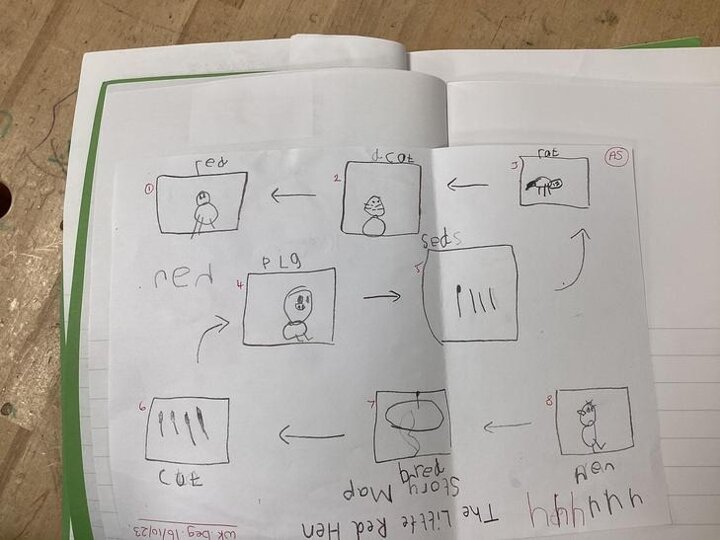 AS
red
cat
rat
1
2
3
hen
PIg
4
5
cat
6
7
8
WK Beg. 16/10/23
The Little Red Hen
Story Map